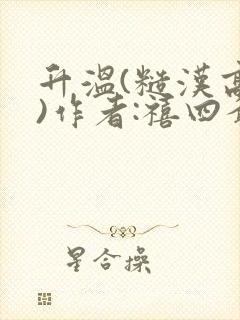 升温(糙汉高
)作者:禧四
星合操